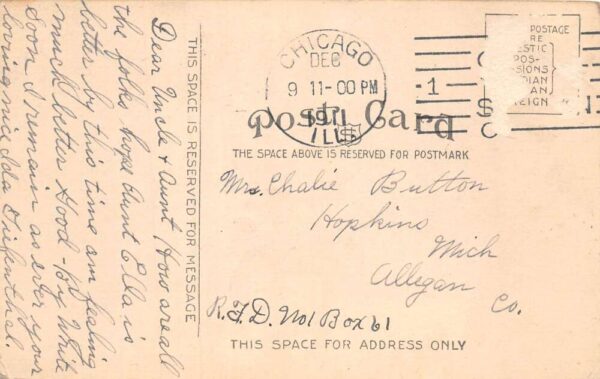 Dear Uncle & Aunt How are all
the folks hope Aunt Ella is
better by this time am feeling
much better Good-By Write
Soon I remain as ever your
loving niece Ida
THIS SPACE IS RESERVED FOR MESSAGE
CHICAGO
DEC
9 11-00 PM
1911
ILLS
1
Post Card
THE SPACE ABOVE IS RESERVED FOR POSTMARK
POSTAGE
RE
ESTIC
POS-
SIONS
DIAN
AN
EIGN
Mrs. Chalie Button
Hopkins
Mich
Allegan Co.
R.F.D. No1 Box 61
THIS SPACE FOR ADDRESS ONLY